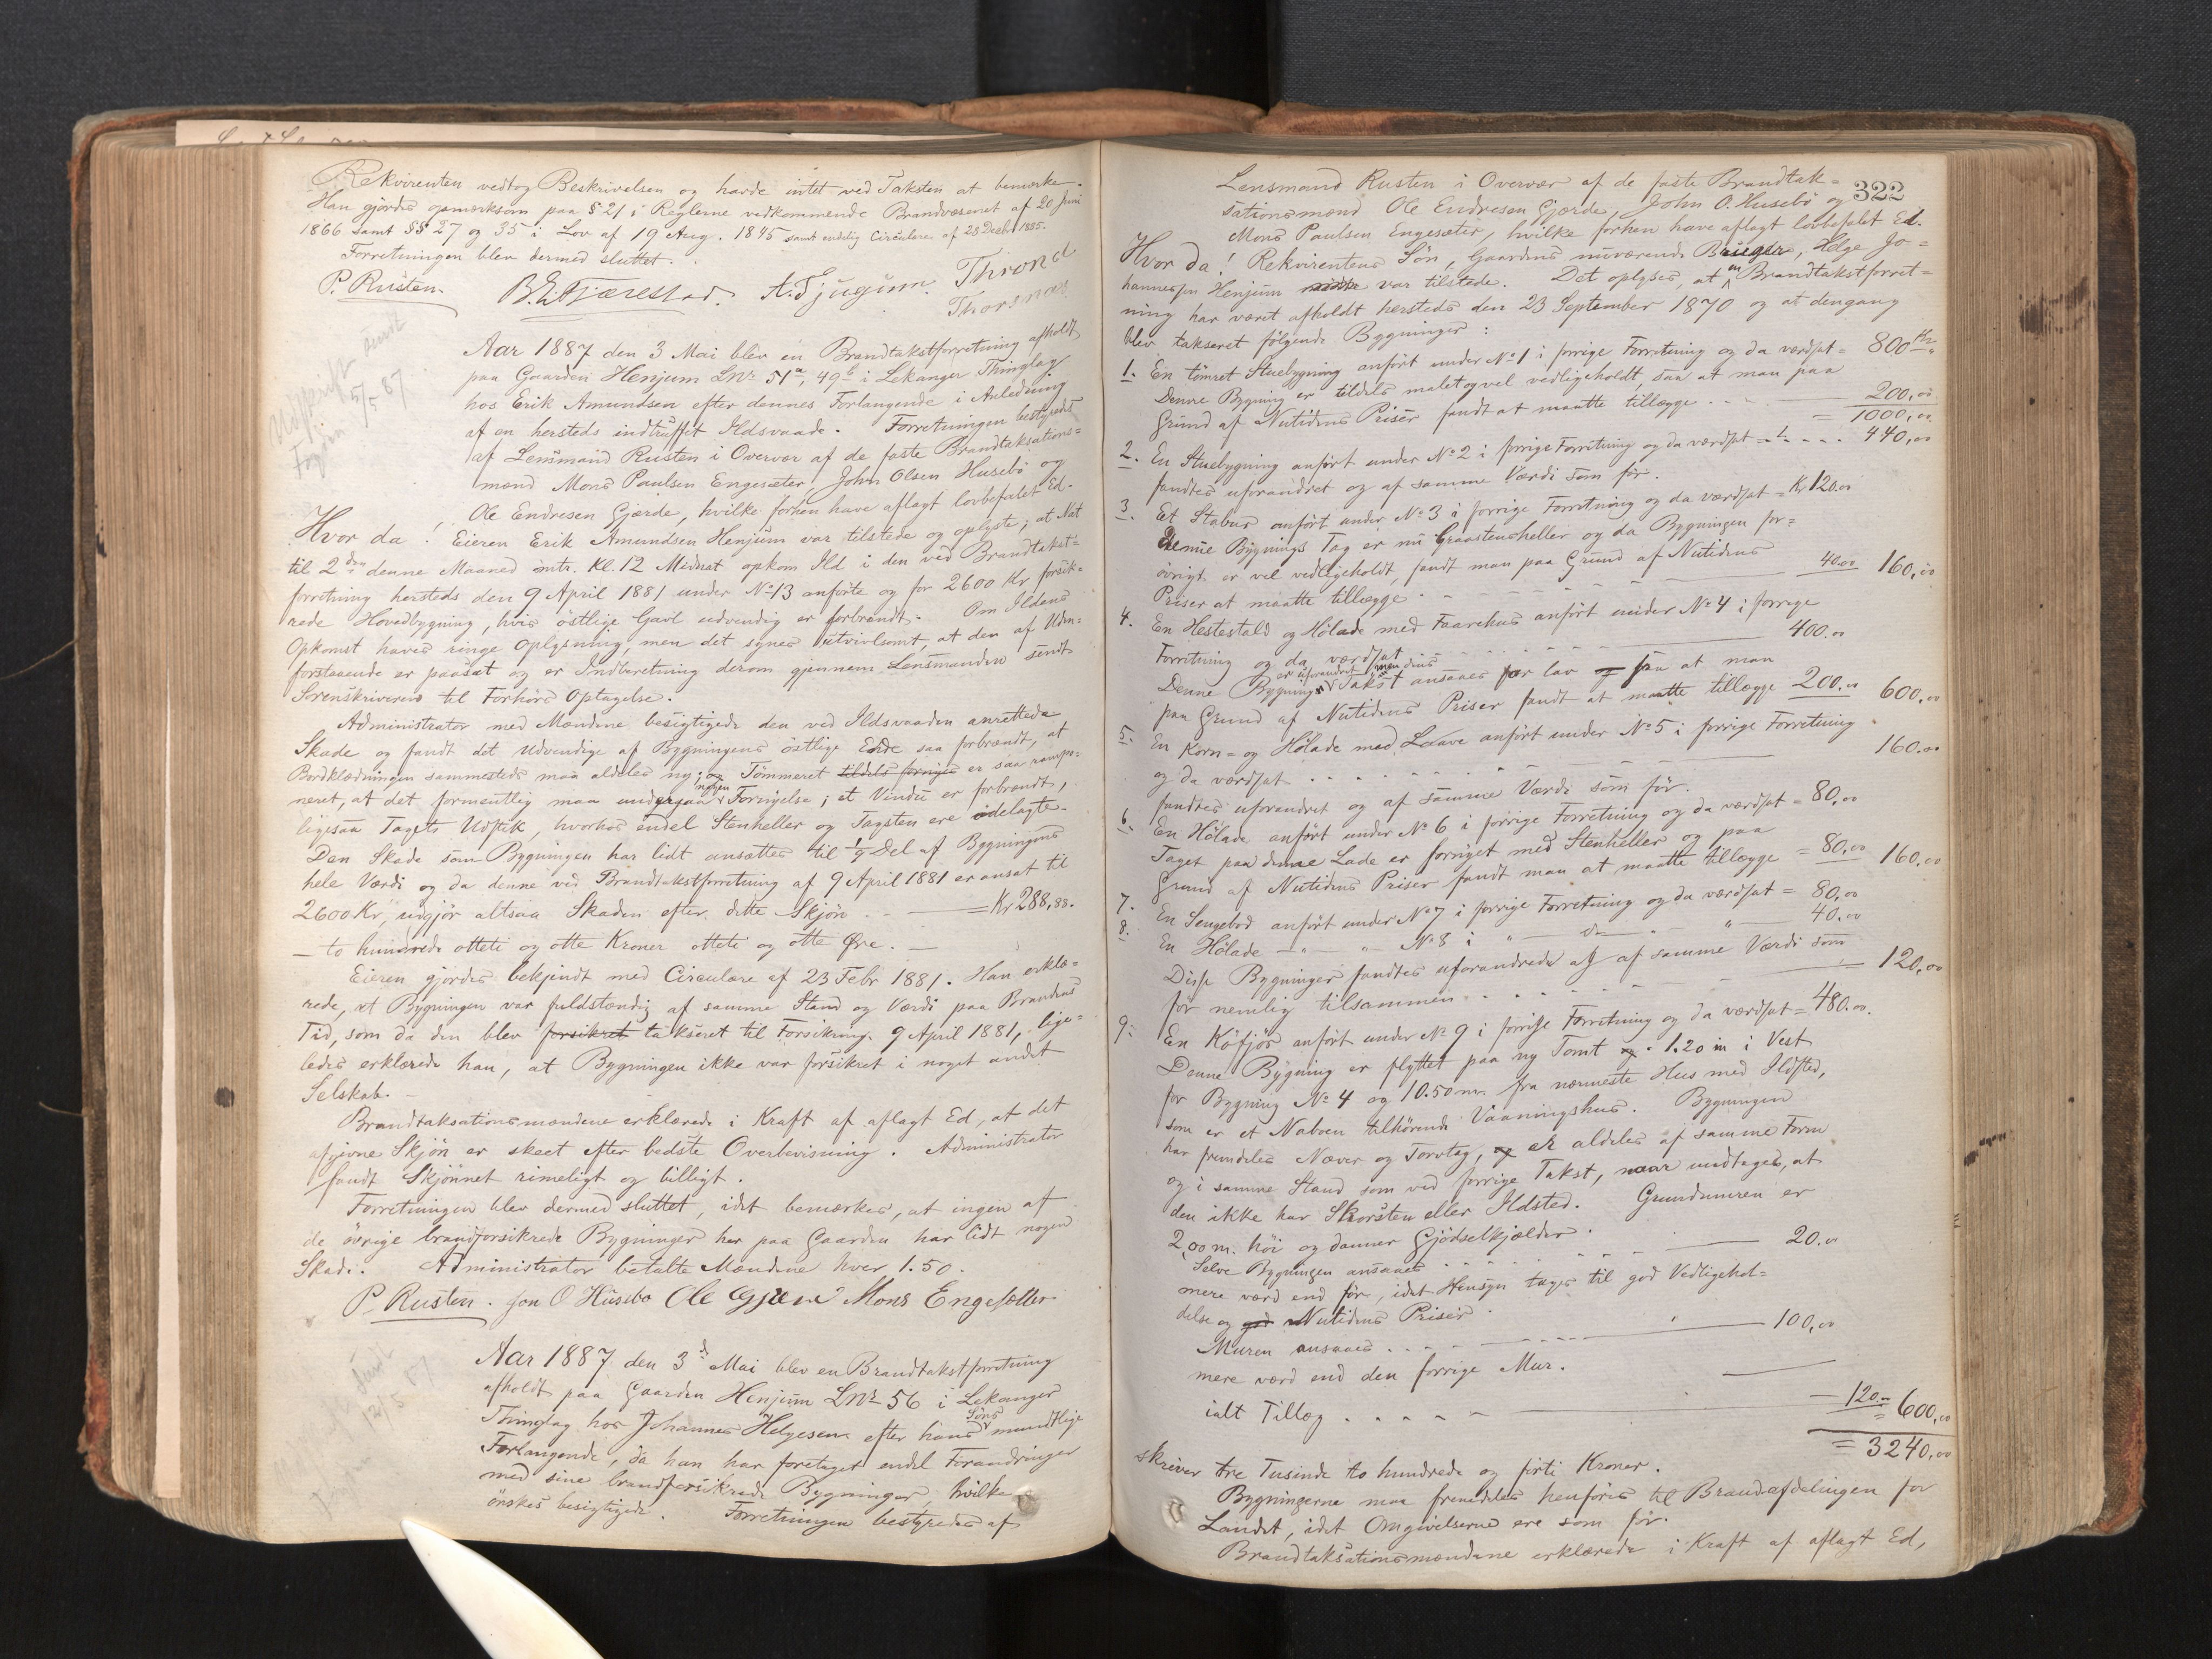 Rekvirenten vedtog Beskrivelsen og havde intet ved Taksten at bemærke.
Han gjordes opmærksom paa § 21 i Reglerne vedkommende Brandvæsenet af 20 Juni
1866 samt §§ 27 og 35 i Lov af 19 Aug. 1845 samt endelig Circulære af 23 Decbr 1885.
Forretningen blev dermed sluttet.
P. Rusten. B. E. Kjærestad. A. Njugum. Thrond
Thorsnæs
Aar 1887 den 3 Mai blev en Brandtakstforretning afholdt
paa Gaarden Henjum LNr 51a, 49b i Lekanger Thinglag
hos Erik Amundsen efter dennes Forlangende i Anledning
af en hersteds indtruffet Ildsvaade. Forretningen bestyredes
af Lensmand Rusten i Overvær af de faste Brandtaksations=
mænd Mons Paulsen Engesæter, John Olsen Husebö og
Ole Endresen Gjærde, hvilke forhen have aflagt lovbefalet Ed.
Hvor da! Eieren Erik Amundsen Henjum var tilstede og oplyste, at Nat
til 2den denne Maaned omtr. Kl. 12 Midnat opkom Ild i den ved Brandtakst=
forretning hersteds den 9 April 1881 under No 13 anförte og for 2600 Kr forsik=
rede Hovedbygning, hvis östlige Gavl udvendig er forbrændt. Om Ildens
Opkomst haves ringe Oplysning, men det synes utvivlsomt, at den af Udm=
forstaaende er paasat og er Indberetning derom gjennem Lensmanden sendt
Sorenskriveren til Forhörs Optagelse.
Administrator med Mændene besigtigede den ved Ildsvaaden anrettede
Skade og fandt det Udvendige af Bygningens östlige Ende saa forbrændt, at
Bordklædningen sammesteds maa aldeles ny; og Tömmeret tildels fornyes er saa rampo=
neret, at det formentlig maa undergaa nogen Fornyelse; et Vindu er forbrændt,
ligesaa Tagets Udstik, hvorhos endel Stenheller og Tagsten ere ödelagte.
Den Skade som Bygningen har lidt ansættes til 1/9 Del af Bygningens
hele Værdi og da denne ved Brandtakstforretning af 9 April 1881 er ansat til
2600 Kr, udgjör altsaa Skaden efter dette Skjön = Kr 288,88.
— to hundrede otteti og otte Kroner otteti og otte Øre. —
Eieren gjordes bekjendt med Circulære af 23 Febr 1881. Han erklæ=
rede, at Bygningen var fuldstændig af samme Stand og Værdi paa Brandens
Tid, som da den blev forsikret takseret til Forsikring 9 April 1881, lige=
ledes erklærede han, at Bygningen ikke var forsikret i noget andet
Selskab.
Brandtaksationsmændene erklærede i Kraft af aflagt Ed, at det
afgivne Skjön er skeet efter bedste Overbevisning. Administrator
fandt Skjönnet rimeligt og billigt.
Forretningen blev dermed sluttet, idet bemærkes, at ingen af
de övrige brandforsikrede Bygninger her paa Gaarden har lidt nogen
Skade. Administrator betalte Mændene hver 1.50.
P. Rusten. Jon O Húsebø Ole Gjære Mons Engesætter
Aar 1887 den 3d Mai blev en Brandtakstforretning
afholdt paa Gaarden Henjum LNr 56 i Lekanger
Thinglag hos Johannes Helgesen efter hans Söns mundtlige
Forlangende, da han har foretaget endel Forandringer
med sine brandforsikrede Bygninger, hvilke
önskes besigtigede. Forretningen bestyredes af
322
Lensmand Rusten i Overvær af de faste Brandtak=
sationsmænd Ole Endresen Gjærde, John O. Husebö og
Mons Paulsen Engesæter, hvilke forhen have aflagt lovbefalet Ed.
Hvor da! Rekvirentens Sön, Gaardens nuværende Bruger, Helge Jo=
hannesen Henjum var tilstede. Det oplyses, at en Brandtakstforret=
ning har været afholdt hersteds den 23 September 1870 og at dengang
blev takseret fölgende Bygninger:
1. En tömret Stuebygning anfört under No 1 i forrige Forretning og da værdsat = 800 Kr
Denne Bygning er tildels malet og vel vedligeholdt, saa at man paa
Grund af Nutidens Priser fandt at maatte tillægge 200,00
= 1000,00
2. En Stuebygning anfört under No 2 i forrige Forretning og da værdsat 440,00
fandtes uforandret og af samme Værdi som för.
3. Et Stabur anfört under No 3 i forrige Forretning og da værdsat = Kr 120.00
Denne Bygnings Tag er nu Graastensheller og da Bygningen for=
övrigt er vel vedligeholdt, fandt man paa Grund af Nutidens
Priser at maatte tillægge 40.00 160,00
4. En Hestestald og Hölade med Faarehus anfört under No 4 i forrige
Forretning og da værdsat 400.00
Denne Bygning er uforandret men dens Takst ansaaes for lav og saa at man
paa Grund af Nutidens Priser fandt at maatte tillægge 200.00 600,00
5. En Korn= og Hölade med Laave anfört under No 5 i forrige Forretning
og da værdsat 160.00
fandtes uforandret og af samme Værdi som för.
6. En Hölade anfört under No 6 i forrige Forretning og da værdsat = 80,00
Taget paa denne Lade er fornyet med Stenheller og paa
Grund af Nutidens Priser fandt man at maatte tillægge = 80,00 160,00
7. En Sengebod anfört under No 7 i forrige Forretning og da værdsat = 80,00
8. En Hölade — " — " No 8 i " — do — " 40.00
Disse Bygninger fandtes uforandrede og af samme Værdi som
för nemlig tilsammen 120,00
9. En Köfjös anfört under No 9 i forrige Forretning og da værdsat = 480.00.
Denne Bygning er flyttet paa ny Tomt og 1.20 m i Vest
for Bygning No 4 og 10.50 m fra nærmeste Hus med Ildsted,
som er et Naboen tilhörende Vaaningshus. Bygningen
har fremdeles Næver og Torvtag, og er aldeles af samme Form
og i samme Stand som ved forrige Takst, naar undtages, at
den ikke har Skorsten eller Ildsted. Grundmuren er
2,00 m. höi og danner Gjödselkjælder.
Selve Bygningen ansaaes 20.00
mere værd end för, idet Hensyn tages til god Vedligehol=
delse og god Nutidens Priser
Muren ansaaes 100,00
mere værd end den forrige Mur.
ialt Tillæg — 120.— = 600,00
= 3240,00
skriver tre Tusinde to hundrede og firti Kroner.
Bygningerne maa fremdeles henföres til Brandafdelingen for
Landet, idet Omgivelserne ere som för.
Brandtaksationsmændene erklærede i Kraft af aflagt Ed,